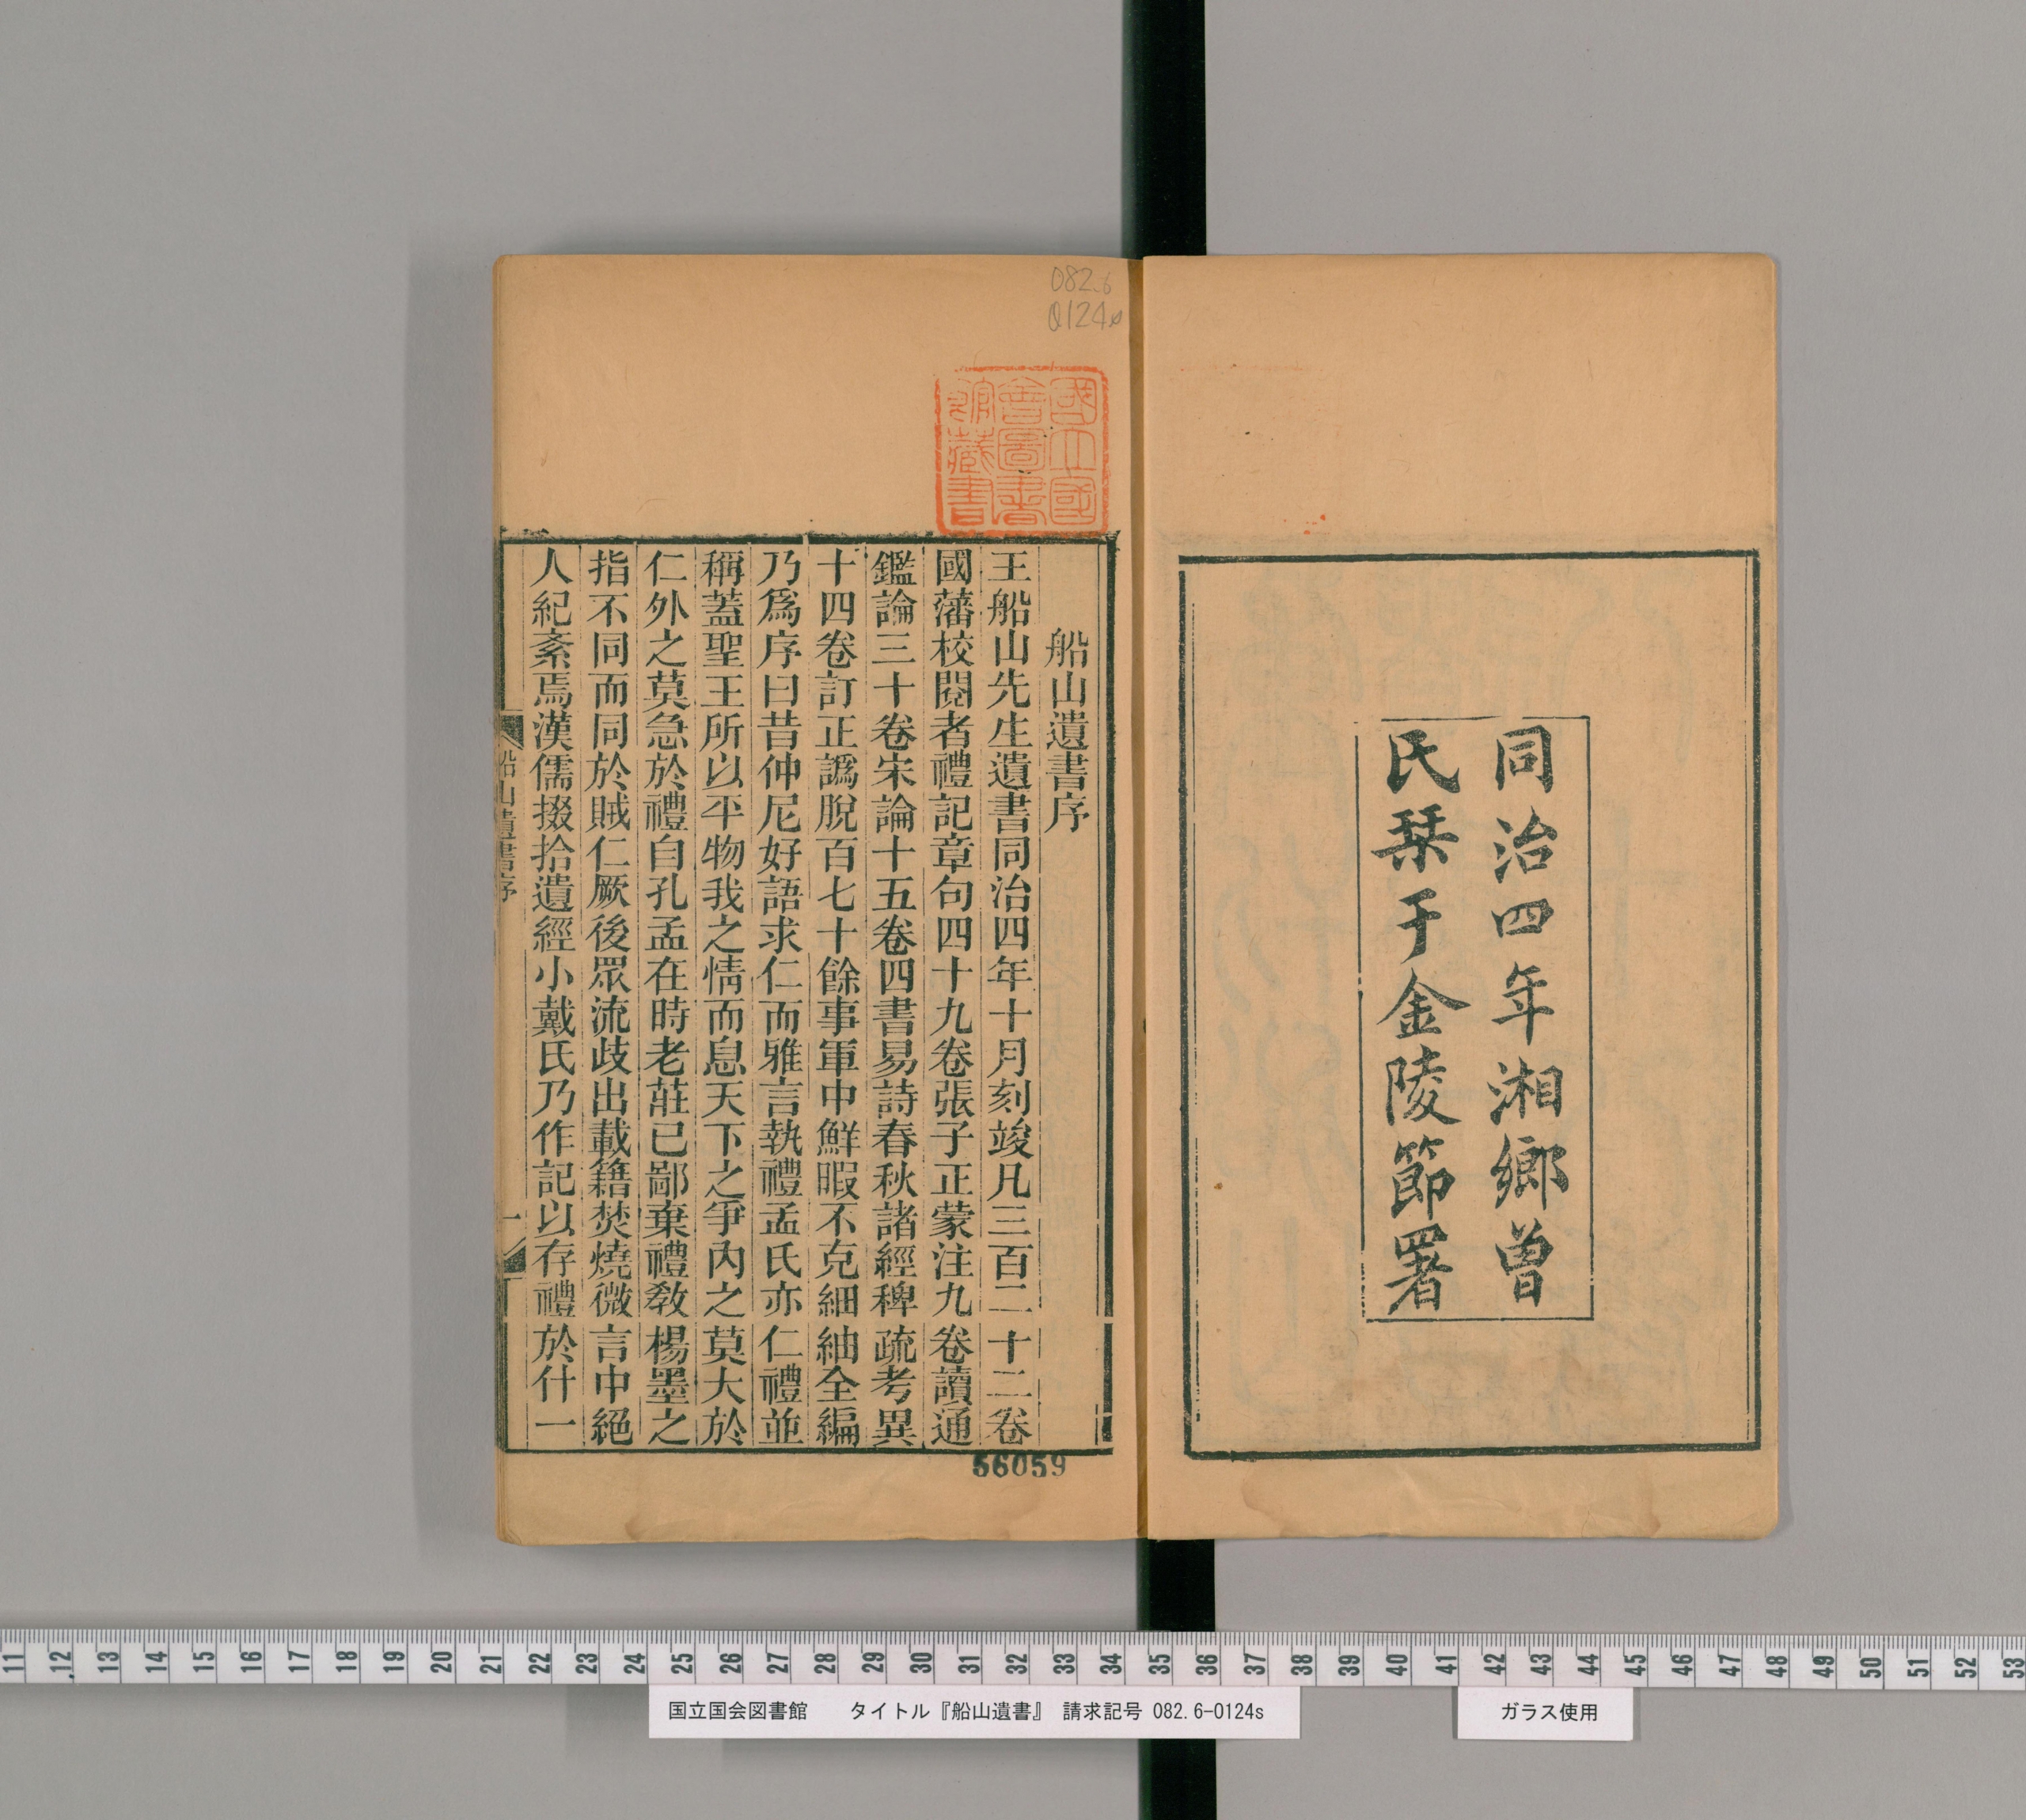 同治四年湘鄉曾
氏栞于金陵節署
082.6
0124s
國立國
會圖書
館藏書
船山遺書序
王船山先生遺書同治四年十月刻竣凡三百二十二卷
國藩校閱者禮記章句四十九卷張子正蒙注九卷讀通
鑑論三十卷宋論十五卷四書易詩春秋諸經稗疏考異
十四卷訂正譌脫百七十餘事軍中鮮暇不克細紬全編
乃爲序曰昔仲尼好語求仁而雅言執禮孟氏亦仁禮並
稱蓋聖王所以平物我之情而息天下之爭內之莫大於
仁外之莫急於禮自孔孟在時老莊已鄙棄禮敎楊墨之
指不同而同於賊仁厥後眾流歧出載籍焚燒微言中絕
人紀紊焉漢儒掇拾遺經小戴氏乃作記以存禮於什一
船山遺書序
一
56059
11 12 13 14 15 16 17 18 19 20 21 22 23 24 25 26 27 28 29 30 31 32 33 34 35 36 37 38 39 40 41 42 43 44 45 46 47 48 49 50 51 52 53
国立国会図書館 タイトル『船山遺書』 請求記号 082.6-0124s
ガラス使用